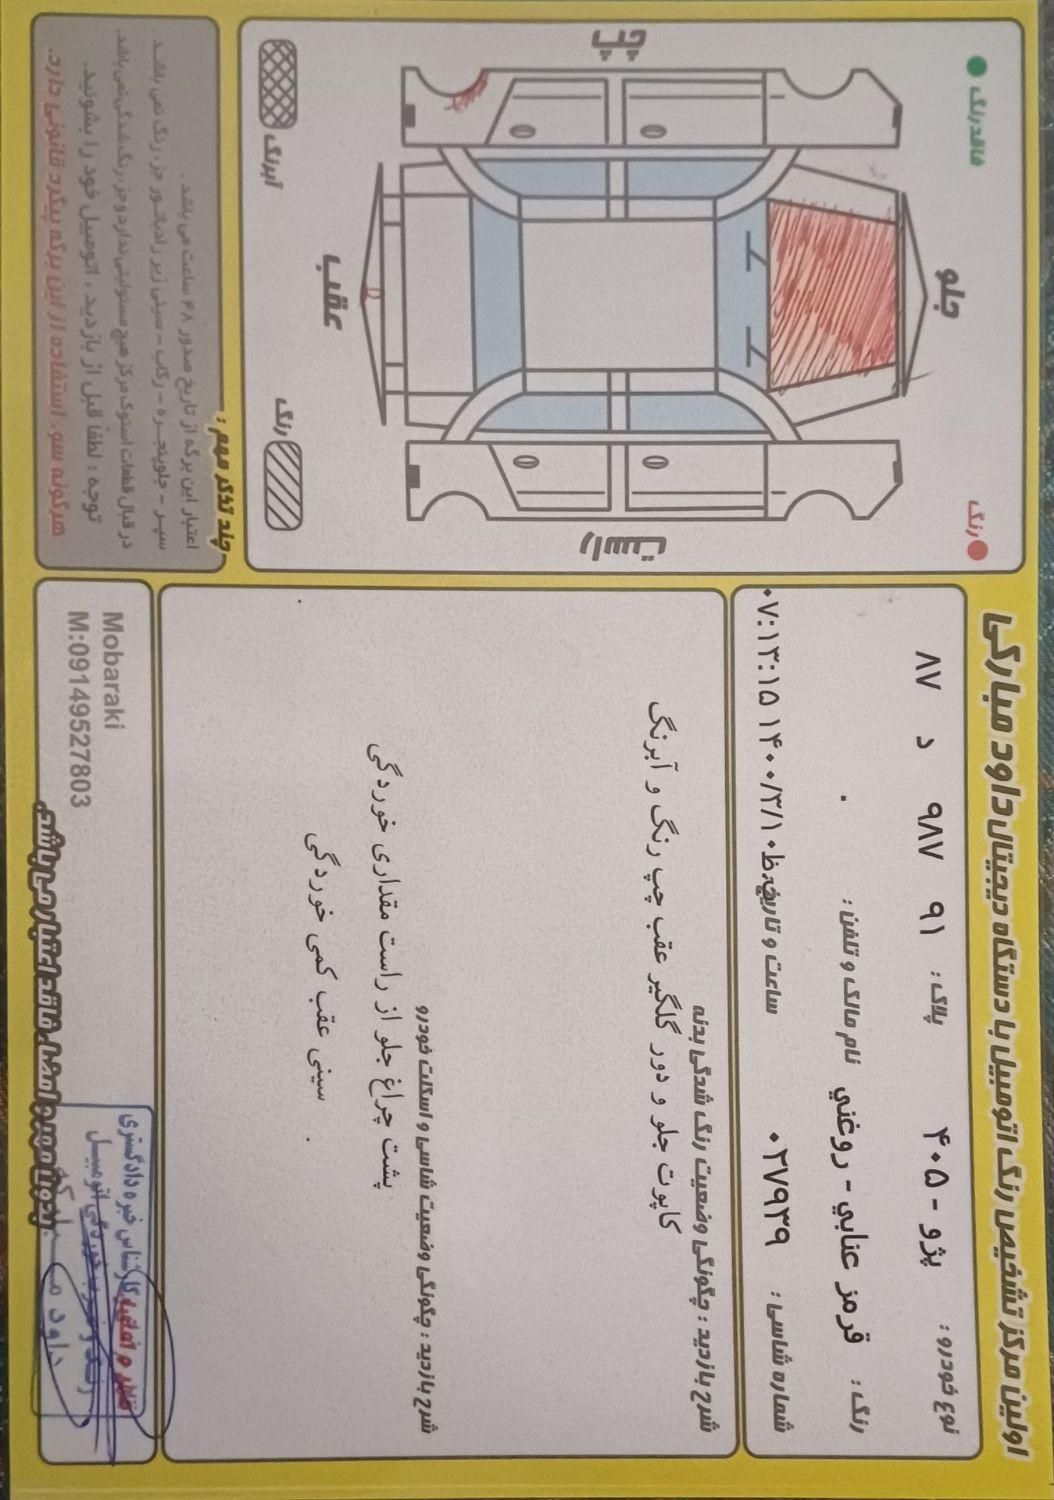 اولین مرکز تشخیص رنگ اتومبیل با دستگاه دیجیتال داود مبارکی
نوع خودرو : پژو - ۴۰۵ پلاک : ۹۱ ۹۸۷ د ۸۷
رنگ : قرمز عنابي - روغني نام مالک و تلفن :
شماره شاسی : ۰۳۷۹۳۹ ساعت و تاریخ ۱۴۰۰/۳/۱۰ ۰۷:۱۳:۱۵
شرح بازدید : چگونگی وضعیت رنگ شدگی بدنه
کاپوت جلو و دور گلگیر عقب چپ رنگ و آبرنگ
شرح بازدید : چگونگی وضعیت شاسی و اسکلت خودرو
پشت چراغ جلو از راست مقداری خوردگی
سینی عقب کمی خوردگی
فاقد رنگ
رنگ
چپ
جلو
عقب
راست
آبرنگ
رنگ
چند تذکر مهم :
اعتبار این برگه از تاریخ صدور ۴۸ ساعت می باشد .
سپر - جلوپنجره - رکاب - سینی زیر رادیاتور جزء رنگ نمی باشد .
در قبال قطعات استوک مرکز هیچ مسئولیتی ندارد و جزء رنگ شدگی نمی باشد.
توجه : لطفا قبل از بازدید ، اتومبیل خود را بشوئید.
هرگونه سوء استفاده از این برگه پیگرد قانونی دارد.
Mobaraki
M:09149527803
بدون مهر و امضاء فاقد اعتبار می باشد.
کارشناس خبره دادگستری
داود